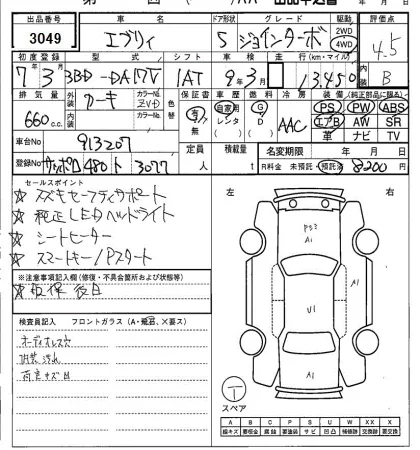 出品番号 車名 ドア形状 グレード 駆動 評価点
3049 エブリィ 5 ジョインターボ 2WD 4WD 4.5
初度登録 型式 シフト 車検 走行(km・マイル)
7年3月 3BD-DA17V 1AT 9年3月 13,450 B
排気量 外装 カーキ カラーNo. ZVD 色替 保証書 車歴 燃料 冷房 装備(純正部品に限る)
660c.c. 内装 カラーNo. 有・無 自家用 レンタ G D AAC PS PW ABS
エアB AW SR
革 ナビ TV
車台No 913207 定員 人 積載量 t 名変期限 年 月 日
登録No 480 3077 R料金 未預託 預託済 8200円
セールスポイント
☆ スズキセーフティサポート
☆ 純正LEDヘッドライト
☆ シートヒーター
☆ スマートキー/Pスタート
※注意事項記入欄(修復・不具合箇所および状態等)
☆ 保 後日
検査員記入 フロントガラス(A・飛石、X要ス)
オーディオレス穴
内装汚れ
荷室キズ凹
左 右
A1
A1
U1
A1
スペア
A B C P S U W X XX
線キズ 要板金 腐蝕 要塗装 サビ 凹凸 補修跡 要交換